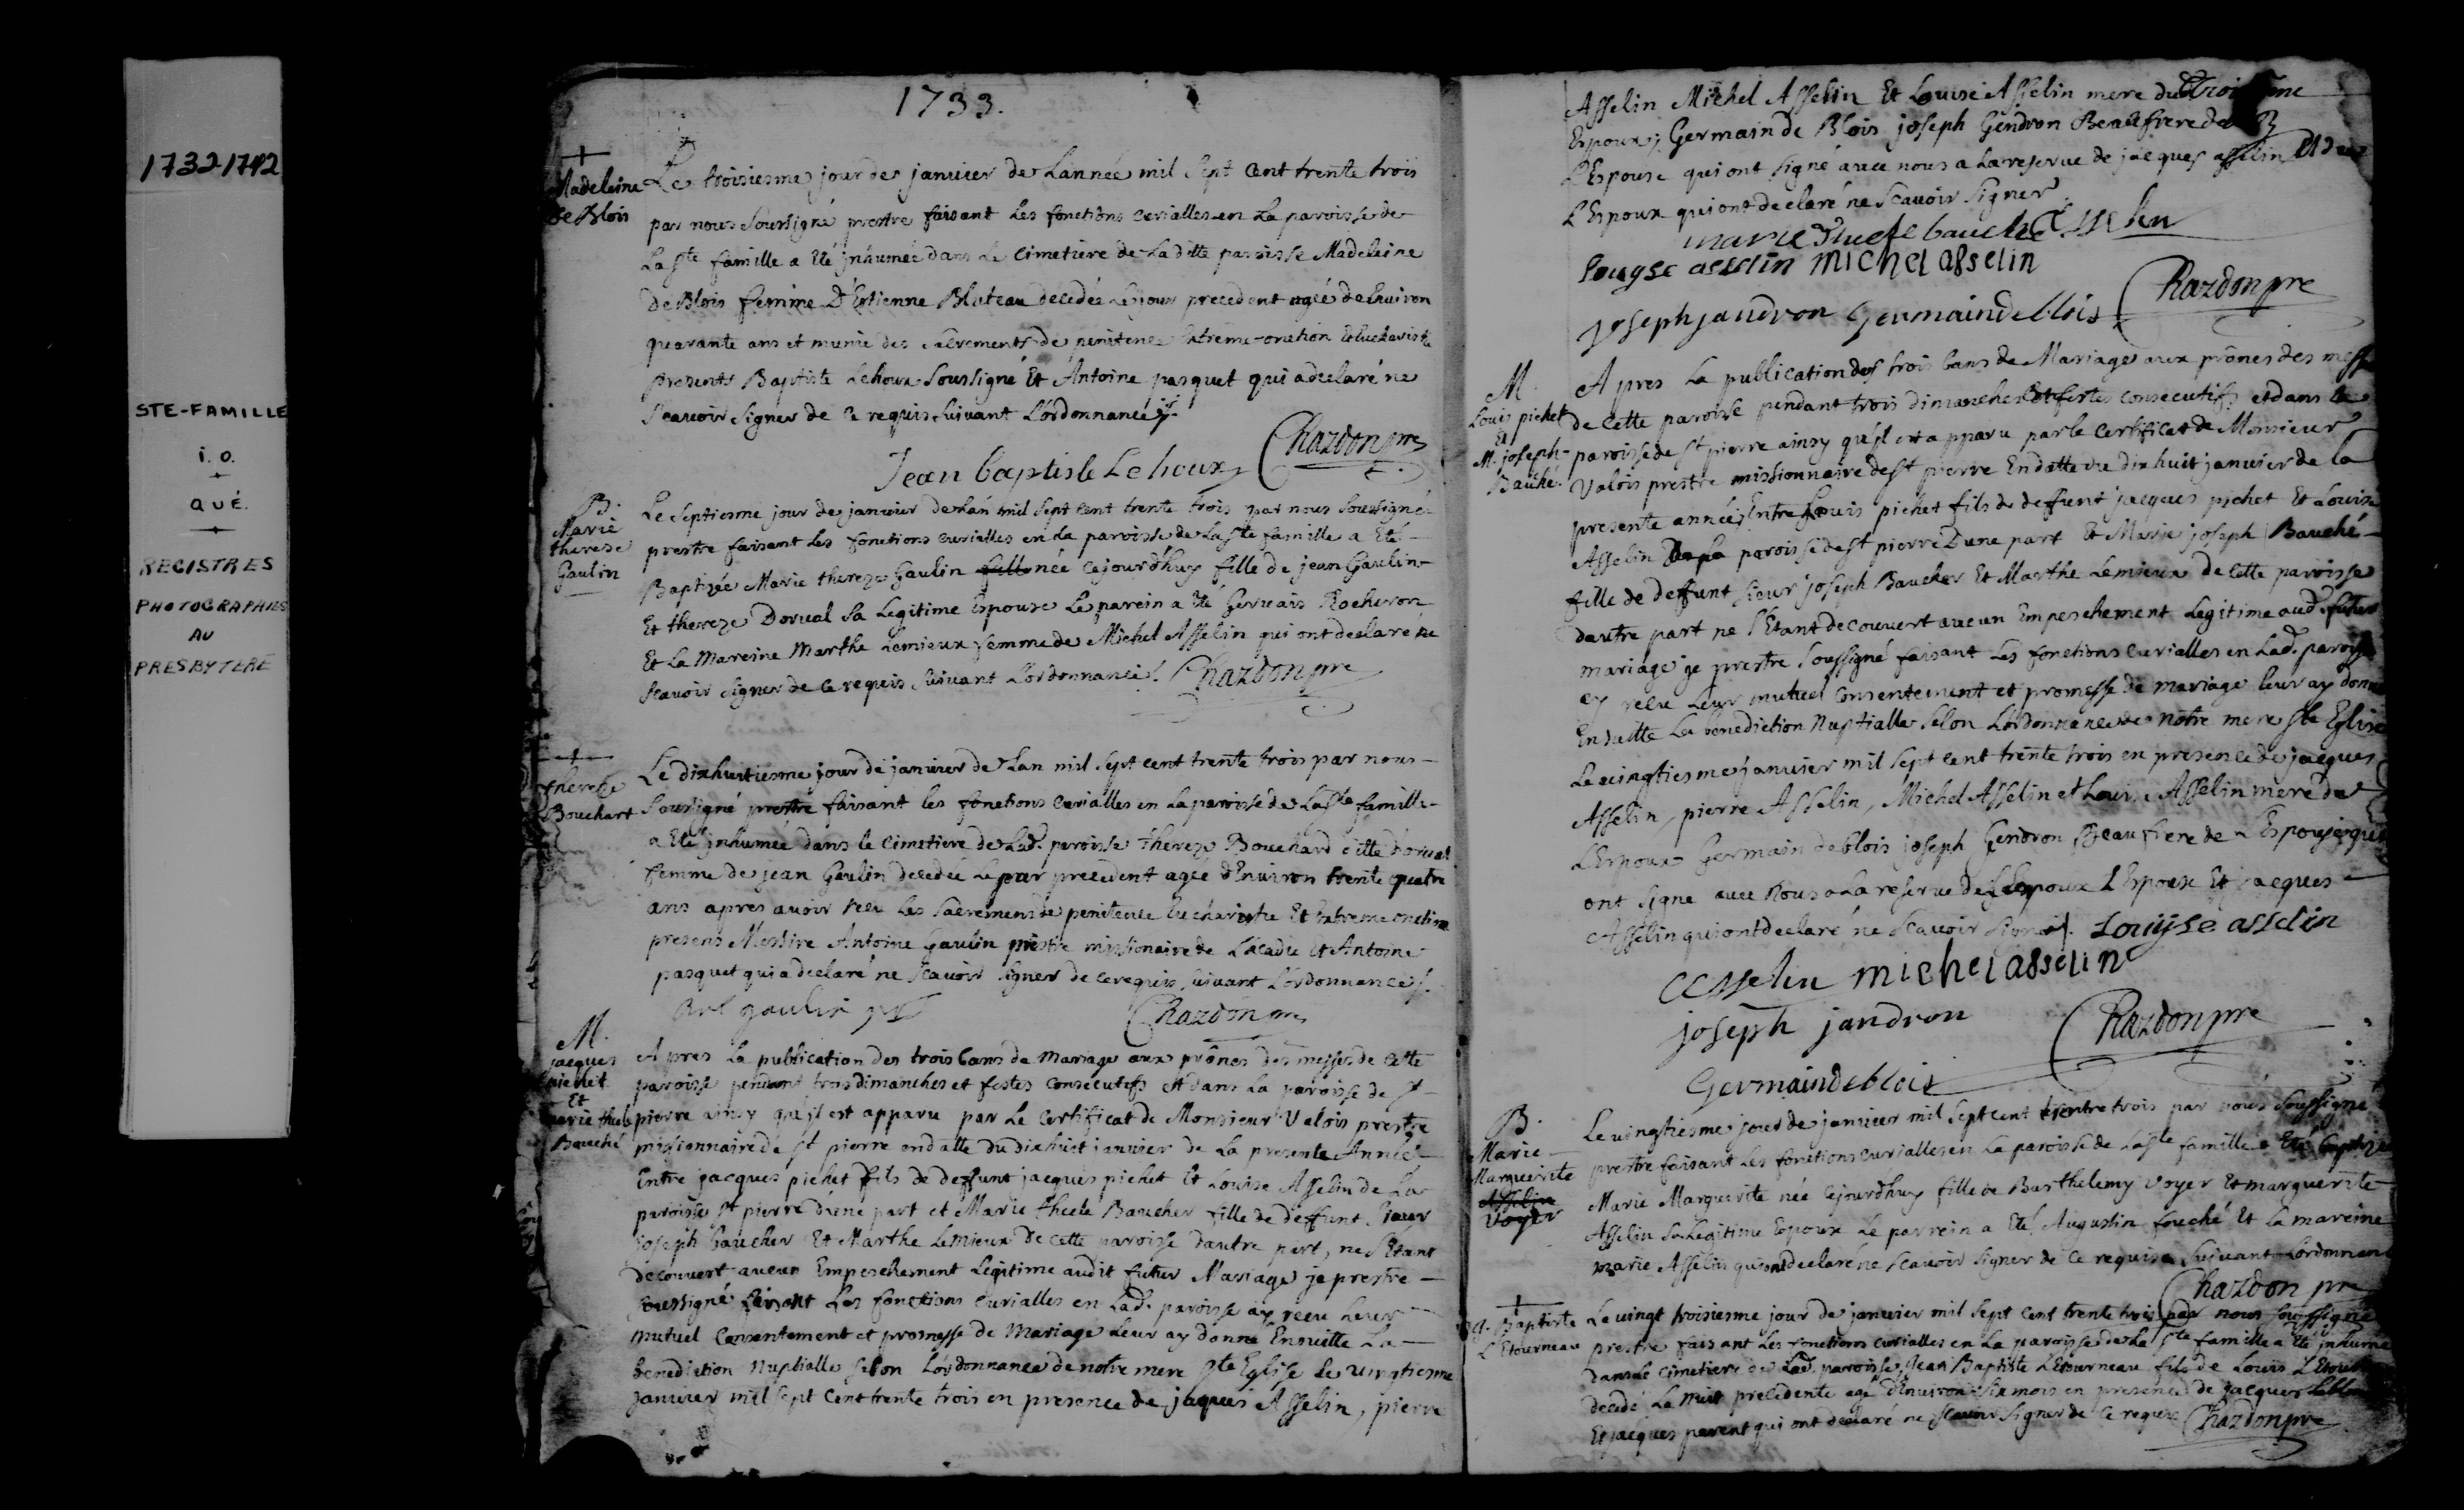 1732-1742
STE-FAMILLE
i. o.
QUÉ.
REGISTRES
PHOTOGRAPHIÉS
AU
PRESBYTERE
1733.
Madeleine
de Blois
Le troisiesme jour de janvier de Lannée mil sept cent trente trois
par nous soussigné prestre faisant les fonctions curialles en La paroisse de
La ste famille a été jnhumée dans Le Cimetiere de La ditte paroisse Madeleine
de Blois femme D'Estienne Bluteau decedée Le jour precedent agée de Environ
quarante ans et munie des sacrements de penitence Extreme-onction et Eucharistie
presents Baptiste Lehoux soussigné Et Antoine pasquet qui a declaré ne
scavoir signer de ce requis suivant L'ordonnance
Jean baptiste Lehoux Chazdon pre
B.
Marie
therese
Gaulin
Le septiesme jour de janvier de Lan mil sept cent trente trois par nous soussigné
prestre faisant Les fonctions curialles en La paroisse de La ste famille a Eté
Baptizée Marie thereze Gaulin fille née cejourdhuy fille de jean Gaulin
Et thereze Dorval sa Legitime Epouse Le parein a été Gervais Rocheron
Et La Mareine Marthe Lemieux femme de Michel Asselin qui ont declaré ne
scavoir signer de ce requis suivant L'ordonnance. Chazdon pre
therese
Bouchart
Le dixhuitiesme jour de janvier de Lan mil sept cent trente trois par nous
Soussigné prestre faisant les fonctions curialles en La paroisse de La ste famille
a Eté jnhumée dans le cimetiere de Lad. paroisse thereze Bouchard ditte dorval
femme de jean Gaulin decedée Le jour precedent agée d'Environ trente quatre
ans apres avoir receu les sacremens de penitence Eucharistie Et Extreme onction
presens Messire Antoine Gaulin prestre missionaire de L'acadie et Antoine
pasquet qui a declaré ne scavoir signer de ce requis suivant L'ordonnance
Ant gaulin ptr Chazdon pre
M.
jacques
pichet
Et
marie thecle
Bauché
Apres La publication des trois bans de Mariage aux prônes des messes de cette
paroisse pendant trois dimanches et festes consecutifs et dans La paroisse de st
pierre ainsy qu'il est apparu par Le Certificat de Monsieur Valois prestre
missionnaire de st pierre en datte du dixhuit janvier de La presente Année
Entre jacques pichet fils de deffunt jacques pichet Et Louise Asselin de La
paroisse st pierre d'une part et Marie thecle Baucher fille de deffunt sieur
joseph Baucher Et Marthe Lemieux de cette paroisse d'autre part, ne s'Etant
decouvert aucun Empeschement Legitime audit futur Mariage je prestre
soussigné faisant Les fonctions curialles en Lad. paroisse ay receu Leur
mutuel Consentement et promesse de Mariage Leur ay donné Ensuitte La
benediction Nuptialle selon L'ordonnance de notre mere ste Eglise Le vingtiesme
janvier mil sept cent trente trois en presence de jaques Asselin, pierre
Asselin Michel Asselin Et Louise Asselin mere du
Epoux; Germain de Blois joseph Gendron Beaufrere de
L'Epouse qui ont signé avec nous a La reserve de jacques asselin Et de
L'Epoux qui ont declaré ne scavoir signer
marie thecle bauché Asselin
Louyse asselin michel asselin
Joseph jandron Germain deblois Chazdon pre
M.
Louis pichet
Et
M. joseph
Bauché
Apres La publication des trois bans de Mariage aux prônes des messes
de cette paroisse pendant trois dimanches et festes consecutifs et dans La
paroisse de st pierre ainsy qu'il est apparu par le Certificat de Monsieur
Valois prestre missionnaire de st pierre En datte du dix huit janvier de la
presente année; Entre Louis pichet fils de deffunt jacques pichet Et Louise
Asselin de La paroisse de st pierre D'une part Et Marie joseph Bauché
fille de deffunt sieur joseph Baucher Et Marthe Lemieux de cette paroisse
dautre part ne s'Etant decouvert aucun Empeschement Legitime aud. futur
mariage je prestre soussigné faisant Les fonctions curialles en Lad. paroisse
ay receu Leur mutuel consentement et promesse de mariage leur ay donné
Ensuitte La benediction Nuptialle selon L'ordonnance de notre mere ste Eglise
Le vingtiesme janvier mil sept cent trente trois en presence de jacques
Asselin, pierre Asselin, Michel Asselin et Louise Asselin mere de
L'Epoux Germain de blois joseph Gendron Beaufrere de L'Epouse qui
ont signé avec Nous a La reserve de L'Epoux L'Epouse Et jacques
Asselin qui ont declaré ne scavoir signer. Louyse asselin
asselin michel asselin
joseph jandron Chazdon pre
Germain deblois
B.
Marie
Marguerite
Asselin
Voyer
Le vingtiesme jour de janvier mil sept cent trente trois par nous soussigné
prestre faisant Les fonctions curialles en La paroisse de La ste famille a Eté baptizée
Marie Marguerite née cejourdhuy fille de Barthelemy Voyer Et marguerite
Asselin sa Legitime Epouse Le parrein a Eté Augustin fouché Et La mareine
marie Asselin qui ont declaré ne scavoir signer de ce requis suivant L'ordonnance
Chazdon pre
Baptiste
L'Etourneau
Le vingt troisiesme jour de janvier mil sept cent trente trois par nous soussigné
prestre faisant Les fonctions curialles en La paroisse de La ste famille a Eté jnhumé
dans Le cimetiere de Lad. paroisse Jean Baptiste L'Etourneau fils de Louis
decedé La nuit precedente agé d'Environ six mois en presence de jacques
Et jacques parent qui ont declaré ne scavoir signer de ce requis Chazdon pre